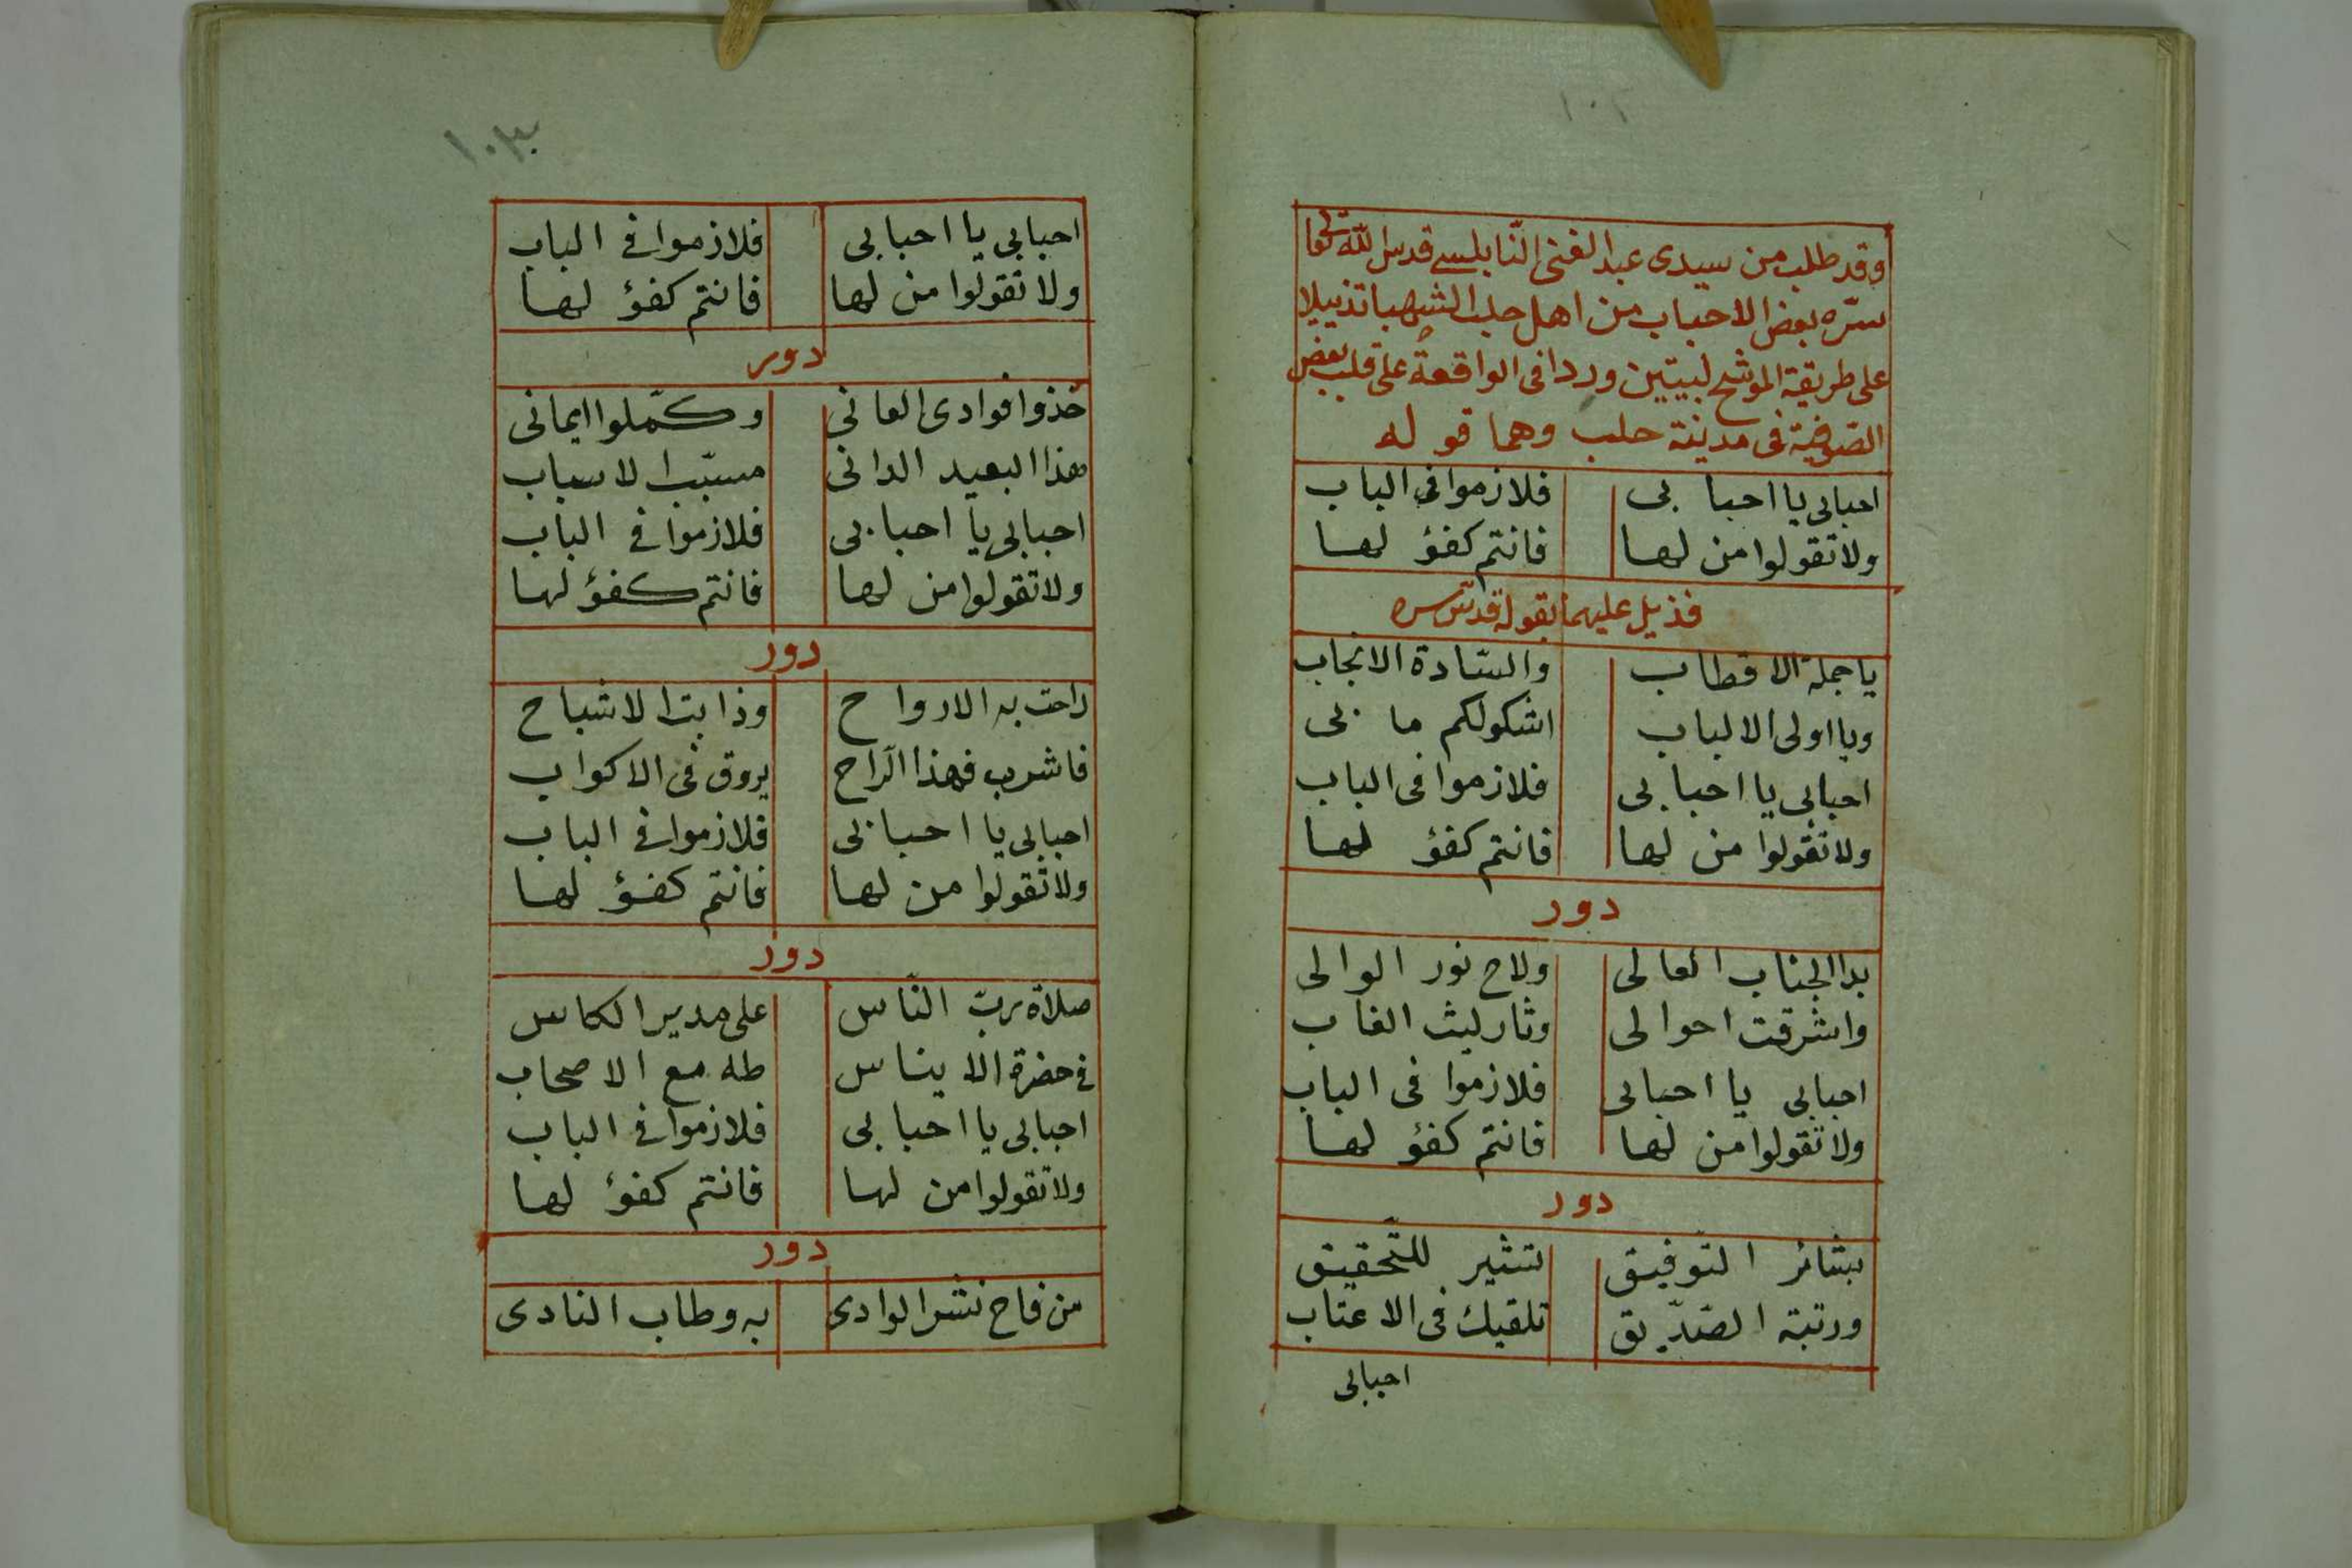 ١٠٢
وقد طلب من سيدى عبد الغنى النّابلسى قدس الله تعا
سرّه بعض الاحباب من اهل حلب الشهبا تذييلا
على طريقة الموشح لبيتين وردا فى الواقعة على قلب بعض
الصّوفية فى مدينة حلب وهما قوله
احبابى يا احبابى فلازموا فى الباب
ولا تقولوا من لها فانتم كفؤ لها
فذيل عليهما بقوله قدّس سره
يا جملة الاقطاب والسّادة الانجاب
ويا اولى الالباب اشكولكم ما بى
احبابى يا احبابى فلازموا فى الباب
ولا تقولوا من لها فانتم كفؤ لها
دور
بدا الجناب العالى ولاح نور الوالى
واشرقت احوالى وثار ليث الغاب
احبابى يا احبابى فلازموا فى الباب
ولا تقولوا من لها فانتم كفؤ لها
دور
بشائر التّوفيق تشير للتّحقيق
ورتبة الصّدّيق تلقيك فى الاعتاب
احبابى
١٠٣
احبابى يا احبابى فلازموا فى الباب
ولا تقولوا من لها فانتم كفؤ لها
دور
خذوا فوادى العانى وكمّلوا ايمانى
هذا البعيد الدانى مسبّب الاسباب
احبابى يا احبابى فلازموا فى الباب
ولا تقولوا من لها فانتم كفؤ لها
دور
راحت به الارواح وذابت الاشباح
فاشرب فهذا الرّاح يروق فى الاكواب
احبابى يا احبابى فلازموا فى الباب
ولا تقولوا من لها فانتم كفؤ لها
دور
صلاة ربّ النّاس على مدير الكاس
فى حضرة الايناس طه مع الاصحاب
احبابى يا احبابى فلازموا فى الباب
ولا تقولوا من لها فانتم كفؤ لها
دور
من فاح نشر الوادى به وطاب النادى